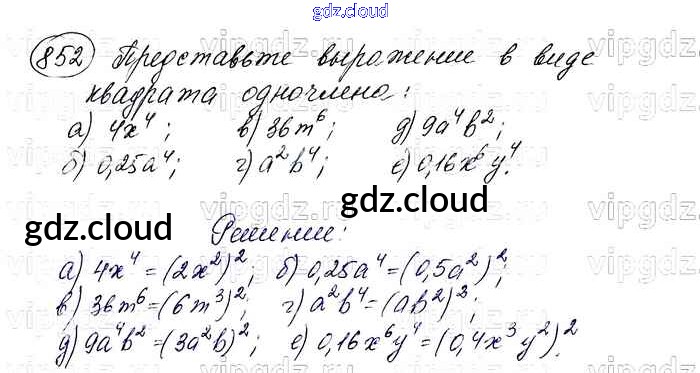 gdz.cloud
852 Представьте выражение в виде
квадрата одночлена:
а) 4x⁴; в) 36m⁶; д) 9a⁴b²;
б) 0,25a⁴; г) a²b⁴; е) 0,16x⁶y⁴.
gdz.cloud
gdz.cloud
Решение:
а) 4x⁴ = (2x²)²; б) 0,25a⁴ = (0,5a²)²;
в) 36m⁶ = (6m³)²; г) a²b⁴ = (ab²)²;
д) 9a⁴b² = (3a²b)²; е) 0,16x⁶y⁴ = (0,4x³y²)².